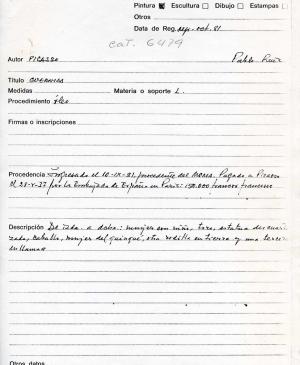 Pintura ☒ Escultura ☐ Dibujo ☐ Estampas ☐
Otros
Data de Reg. sep-oct. 81
cat. 6479
Autor PICASSO Pablo Ruiz
Título GUERNICA
Medidas Materia o soporte L.
Procedimiento óleo
Firmas o inscripciones
Procedencia Ingresado el 10-IX-81, procedente del MOMA. Pagado a Picasso
el 28-V-37 por la Embajada de España en París: 150.000 francos franceses
Descripción De izda. a dcha.: mujer con niño, toro, estatua descuarti-
zada, caballo, mujer del quinqué, otra rodilla en tierra y una tercera
en llamas
Otros datos